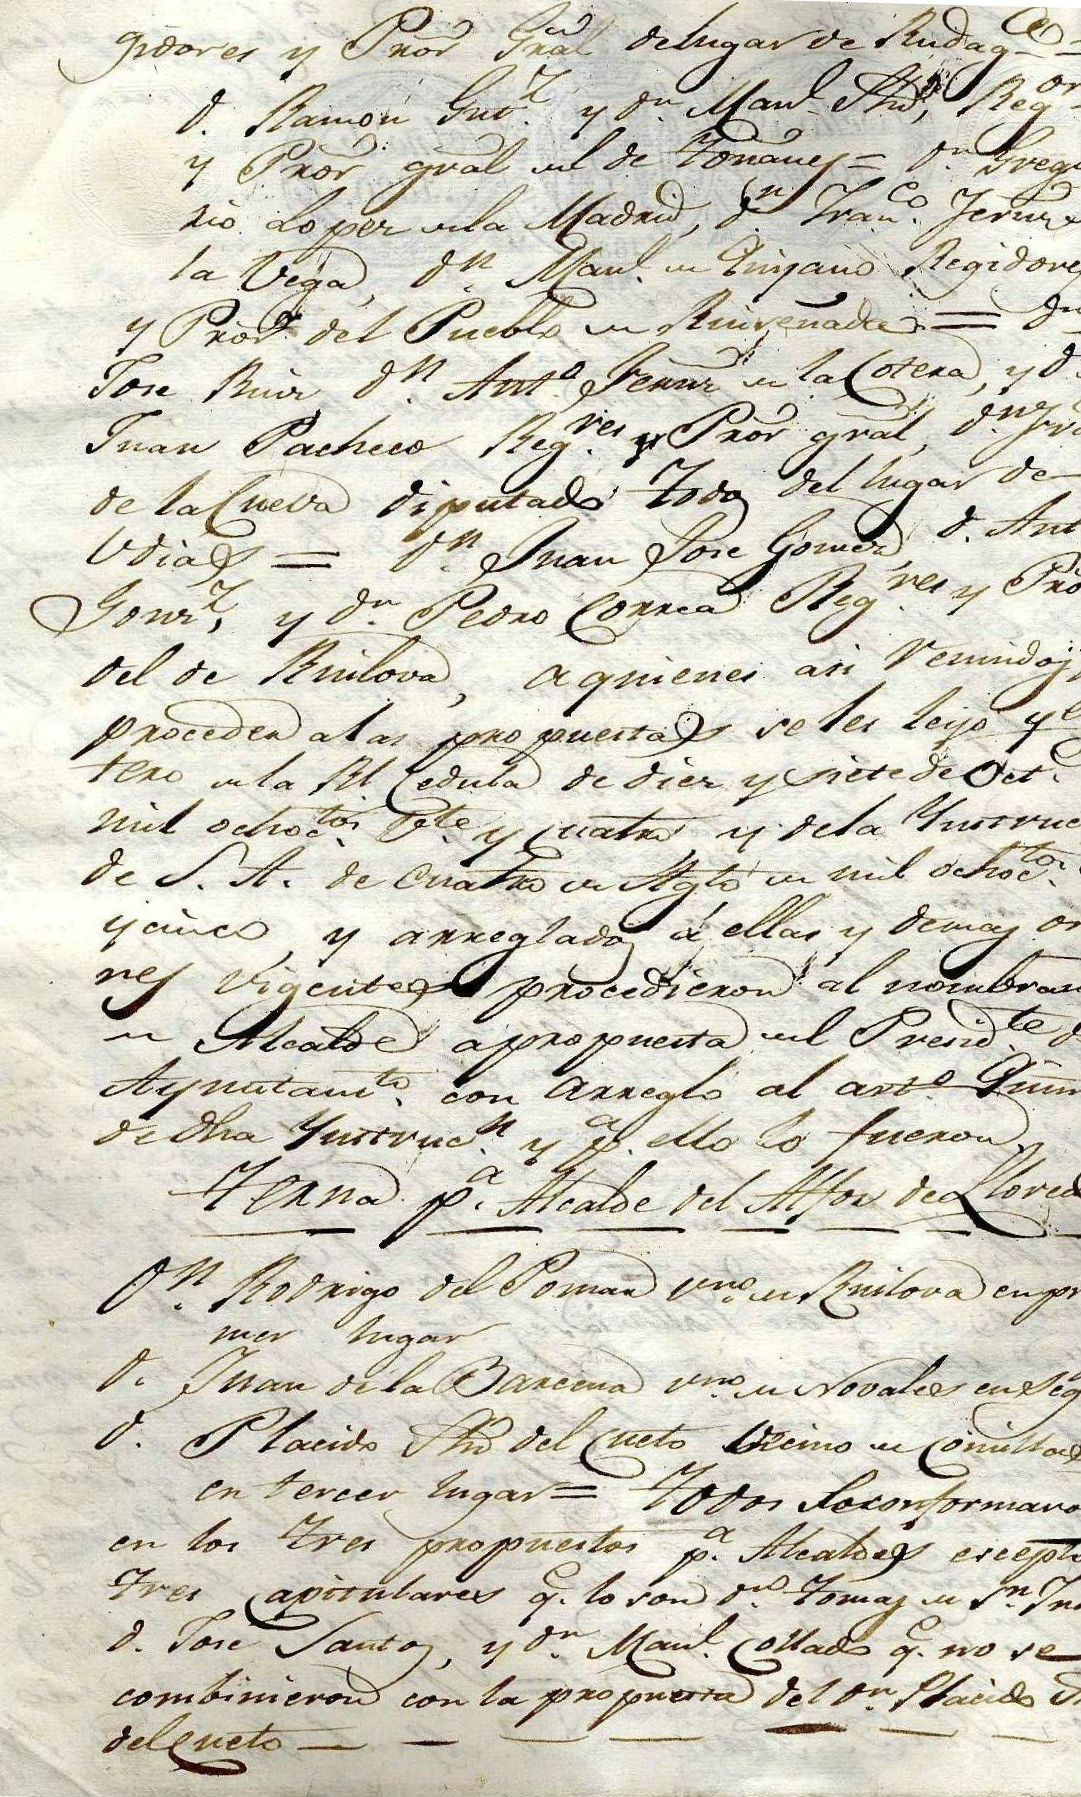 gidores y Pror Gral del lugar de Rudag
d. Ramon Gutz. y dn. Manl. Frz, Regor
y Pror gral del de Toñanes = dn. Grego
rio Loper de la Madrid, dn. Franco. Fernz de
la Vega, dn. Manl. de Quijano Regidores
y Pror. del Pueblo de Ruiseñada = dn
Jose Ruiz dn. Anto. Fernz de la Cotera, y d.
Juan Pacheco Regres. y Pror gral, dn. Fra
de la Cueva diputado todos del lugar de
Udias = dn. Juan Jose Gomez, d. Ant
Gonzz, y dn. Pedro Correa Regres. y Pro
del de Ruilova, a quienes asi reunidos,
proceden a las propuestas se les leyo y e
tero de la Rl Cedula de diez y siete de Oct.
mil ochoctos. vte. y cuatro, y de la Ynstruc
de S. A. de cuatro de Agto de mil ochoctos.
y cinco, y arreglados á ellas y demas or
nes vigentes procedieron al nombram
de Alcalde a propuesta del Presidte. d
Ayuntamto. con arreglo al arto. Quin
de dha Ynstrucn. y pa. ello lo fueron
Terna pa. Alcalde del Alfoz de Lloreda
Dn. Rodrigo del Pomar vno. de Ruilova en pri
mer lugar
d. Juan de la Barcena vno. de Novales en seg
d. Placido Frz del Cueto vecino de Comillas
en tercer lugar = Todos se conformaro
en los tres propuestos pa. Alcaldes escepto
tres capitulares q. lo son dn. Tomas de Sn. Jua
d. Jose Santos, y dn. Manl. Collado q. no se
combinieron con la propuesta del dn. Placido F
del Cueto